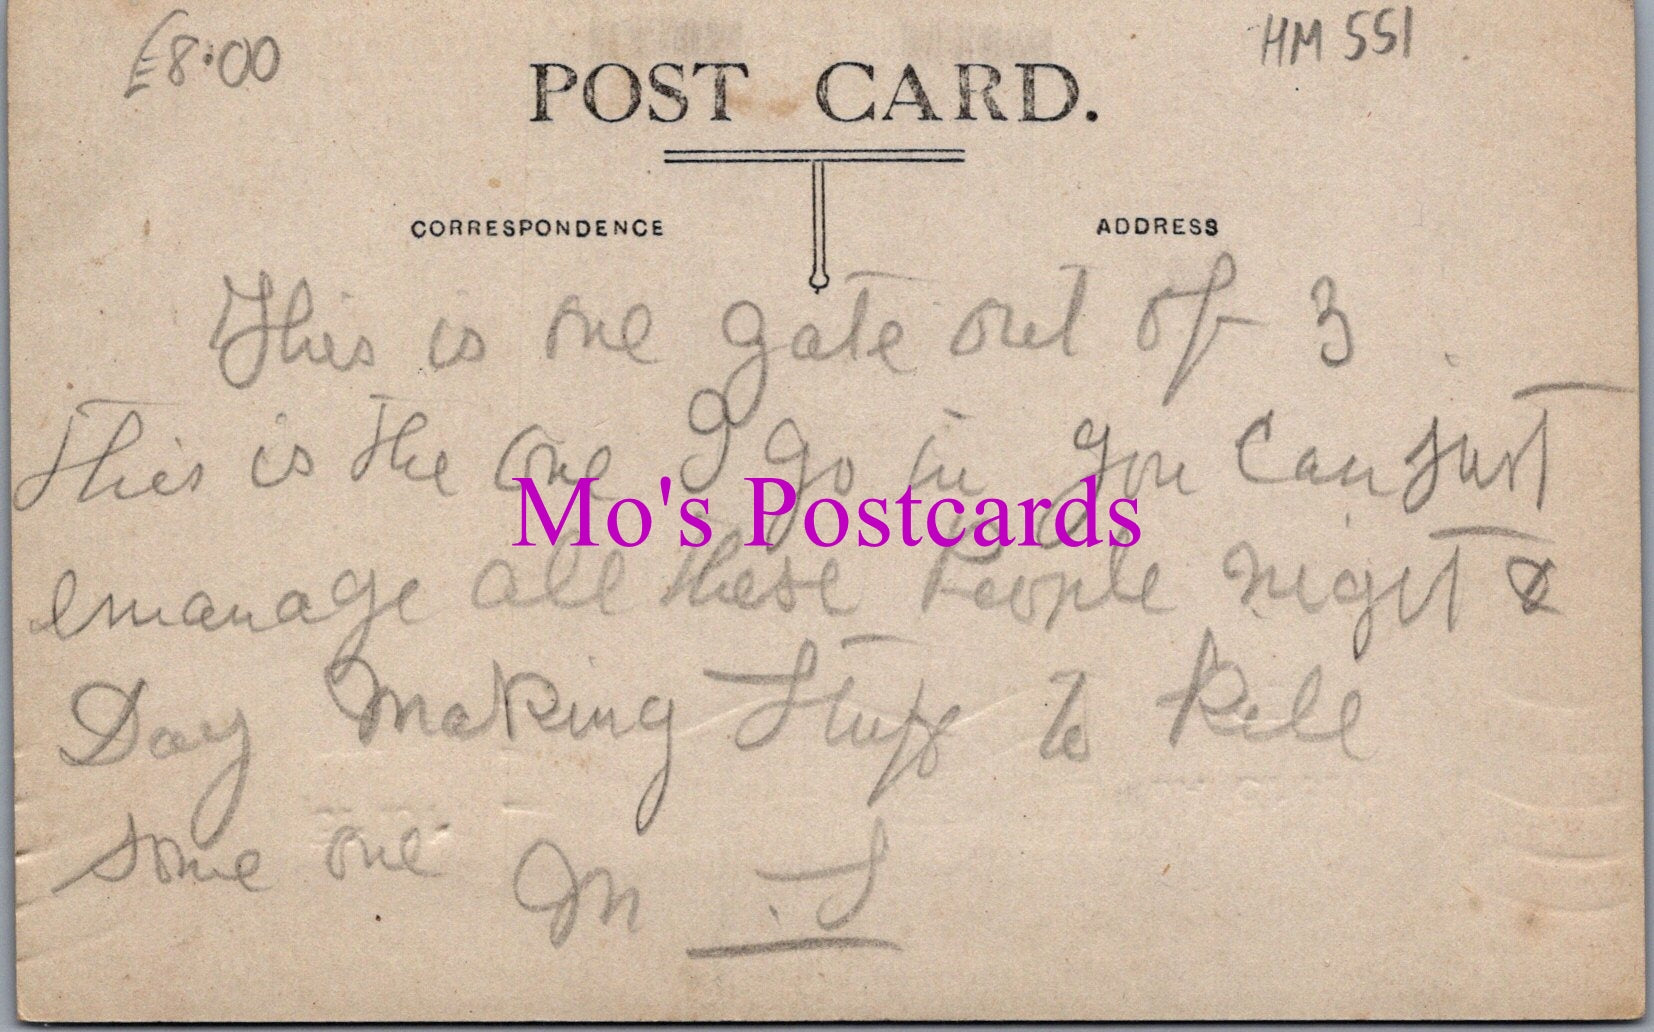 £8.00
HM 551
POST CARD.
CORRESPONDENCE
ADDRESS
This is one gate out of 3
this is the one I go in you can just
emanage all these People niget &
Day Making Stuff to Kill
some one M. S
Mo's Postcards